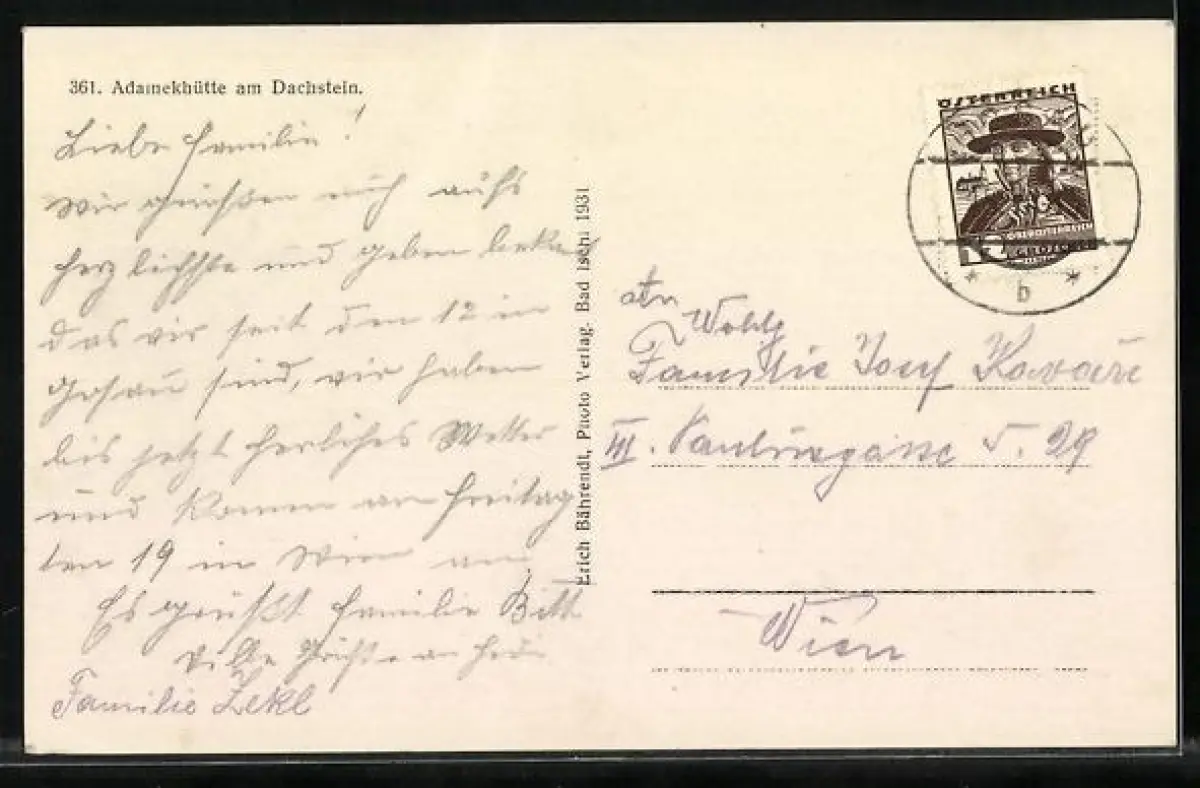 361. Adamekhütte am Dachstein.
Liebe Familie!
Wir grüßen euch aufs
herzlichste und geben bekannt
das wir seit den 12 in
Gosau sind, wir haben
bis jetzt herliches Wetter
und komen am Freitag
den 19 in Wien an
Es grüßt Familie Bitt
Viele Grüße an
Familie Zekl
Erich Bährendt, Photo Verlag, Bad Ischl 1931
ÖSTERREICH
OBERÖSTERREICH
12 GROSCHEN
* b *
An
Wohlg
Familie Josef Kovaře
III. 29
Wien